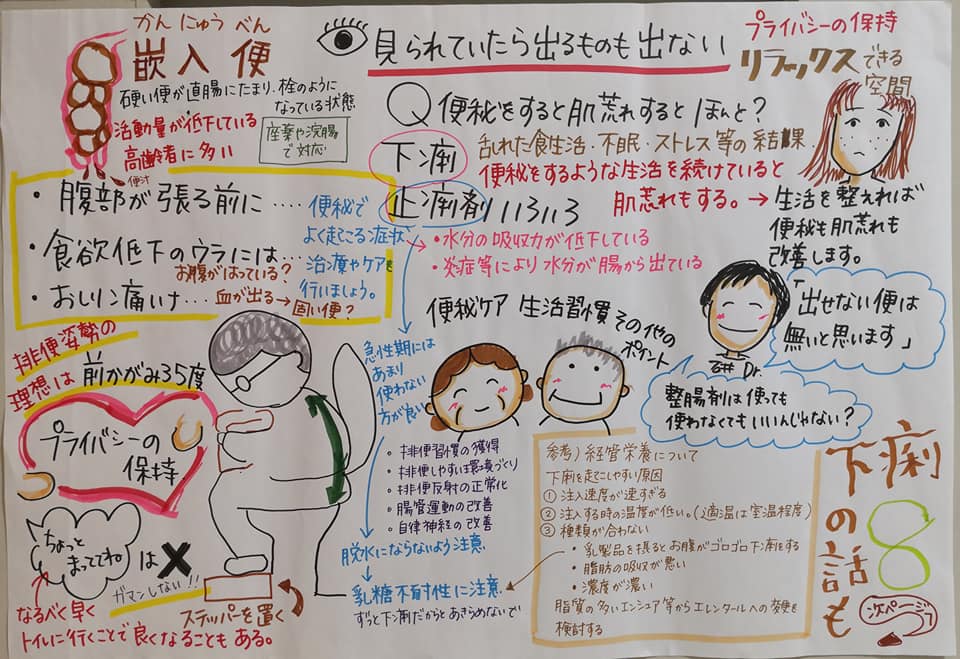 かん にゅう べん
嵌入便
硬い便が直腸にたまり、栓のように
なっている状態
活動量が低下している
高齢者に多い
座薬や浣腸
で対応
便汁
見られていたら出るものも出ない
プライバシーの保持
リラックスできる
空間
Q 便秘をすると肌荒れするとほんと？
乱れた食生活・不眠・ストレス等の結果
便秘をするような生活を続けていると
肌荒れもする。→ 生活を整えれば
便秘も肌荒れも
改善します。
・腹部が張る前に‥‥
・食欲低下のウラには
お腹がはっている？
・おしりの痛いけ‥‥血が出る→固い便？
便秘で
よく起こる症状
治療やケアを
行いましょう。
下痢
止痢剤いろいろ
・水分の吸収力が低下している
・炎症等により水分が腸から出ている
急性期には
あまり
使わない
方が良い
脱水にならないよう注意
乳糖不耐性に注意
ずっと下剤だからとあきらめないで
便秘ケア 生活習慣 その他の
ポイント
・排便習慣の獲得
・排便しやすい環境づくり
・排便反射の正常化
・腸管運動の改善
・自律神経の改善
「出せない便は
無いと思います」
石井 Dr.
整腸剤は使っても
使わなくてもいいんじゃない？
排便姿勢の
理想は前かがみ35度
プライバシーの
保持
ちょっと
まっててね
は×
ガマンしない!!
なるべく早く
トイレに行くことで良くなることもある。
ステッパーを置く
参考）経管栄養について
下痢を起こしやすい原因
① 注入速度が速すぎる
② 注入する時の温度が低い。（適温は室温程度）
③ 種類が合わない
・乳製品を摂るとお腹がゴロゴロ下凄をする
・脂肪の吸収が悪い
・濃度が濃い
脂質の多いエンシュア等からエレンタールへの変更を
検討する
下痢
の話も
8
次ページ